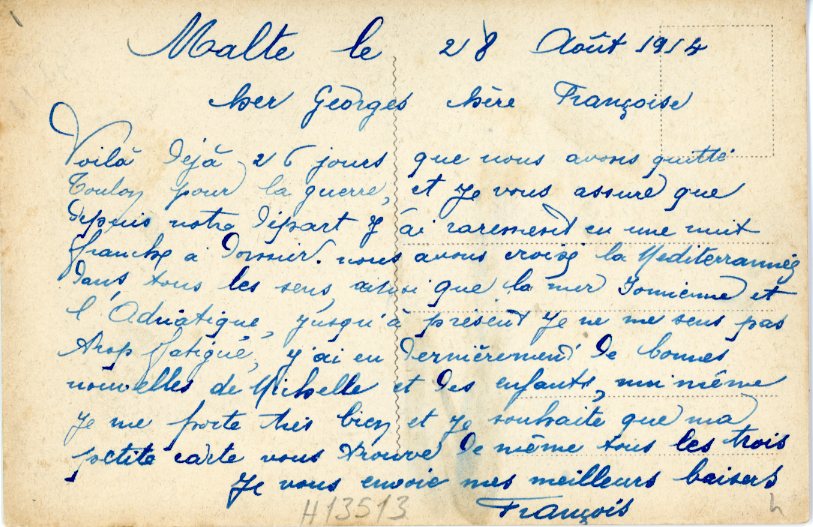 Malte le 28 Août 1914
Cher Georges Chère Françoise
Voilà Déjà 26 jours que nous avons quitté
Toulon pour la guerre, et je vous assure que
depuis notre Départ j'ai rarement eu une nuit
franche a Dormir. nous avons croisé la Mediterrannée
Dans tous les sens, ainsi que la mer Ionienne et
l'Adriatique, jusqu'à présent je ne me sens pas
trop fatigué, j'ai eu Dernièrement De bonnes
nouvelles de et Des enfants, moi même
je me porte très bien et je souhaite que ma
petite carte vous trouve De même tous les trois
Je vous envoie mes meilleurs baisers
François
H13513